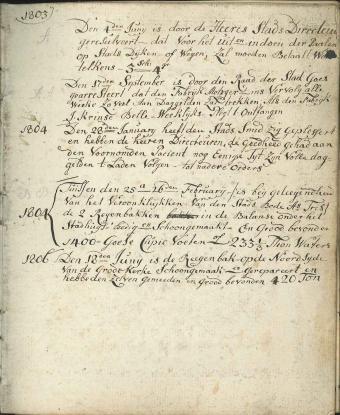 1803
Den 4den Juny is door de Heeren Stads Directeuren
geresolveert dat voor het uit en indoen der Baalen
op Stads Dijken of Wegen, zal moeden Betaalt Worden
telkens 3 Sch: 4 gr
Den 17den September is door den Raad der Stad Goes
gearesteert dat den Fabryk Metzger ins Vervolg alle
Weeke zo veel aan Daggelden zal trekken, als den Fabryk
J. Kruse Belle Weeklyks Plegt ontfangen
1804 Den 28den January heeft den Stads Smid zig Geplogeert
en hebben de heeren Directeuren, de Goedheid Gehad aan
den Voornomden Pacient nog Eenige tyt Zyn Volle dag
gelden te Laden Volgen tot nadere Orders
1804 Tussen den 25 a 26den February is bij gelegentheid
Van het Verongelukken Van den Stads Bode
de 2 Regenbakken in de Balanse onder hel
Stadhuis Leedig en Schoongemaakt En Grood bevonden
1400 Goese Cupic Voeten of 233½ Thon Waters
1806 Den 18den Juny is de Reegenbak op de Noord Syde
Van de Groote Kerke Schoongemaak en Gerepareert en
hebbe den Zelven Gemeeden en Grood bevonden 420 Ton